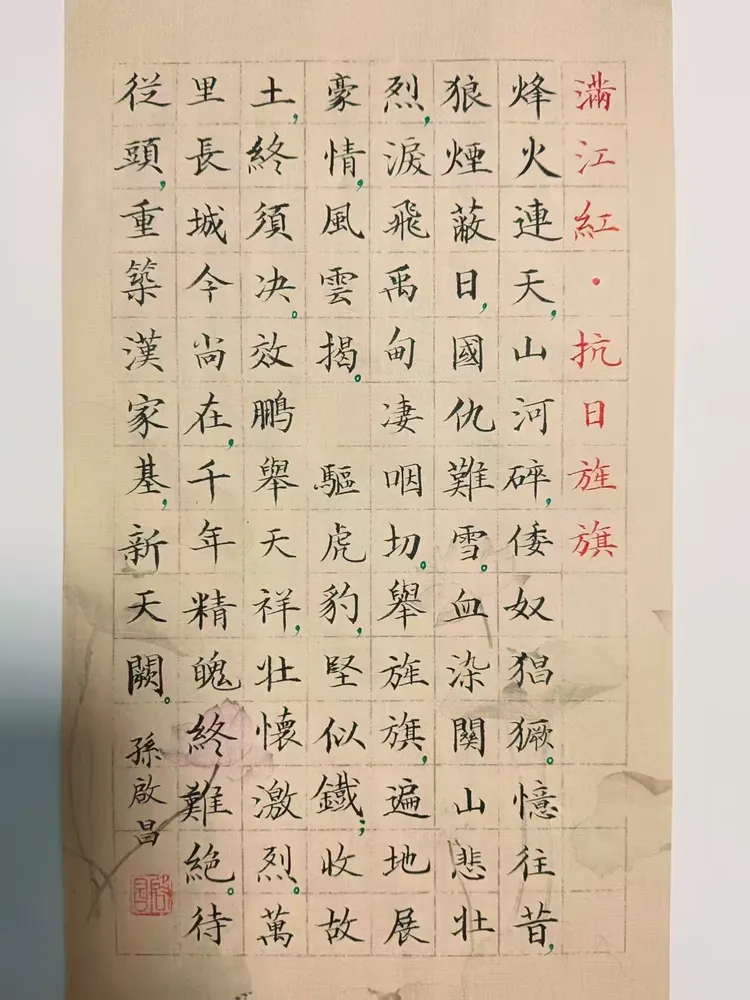 滿江紅·抗日旌旗
烽火連天，山河碎，倭奴猖獗。憶往昔，
狼煙蔽日，國仇難雪。血染關山悲壯
烈，淚飛禹甸凄咽切。舉旌旗，遍地展
豪情，風雲揭。 驅虎豹，堅似鐵；收故
土，終須决。效鵬舉天祥，壯懷激烈。萬
里長城今尚在，千年精魄終難絕。待
從頭，重築漢家基，新天闕。
孫啟昌